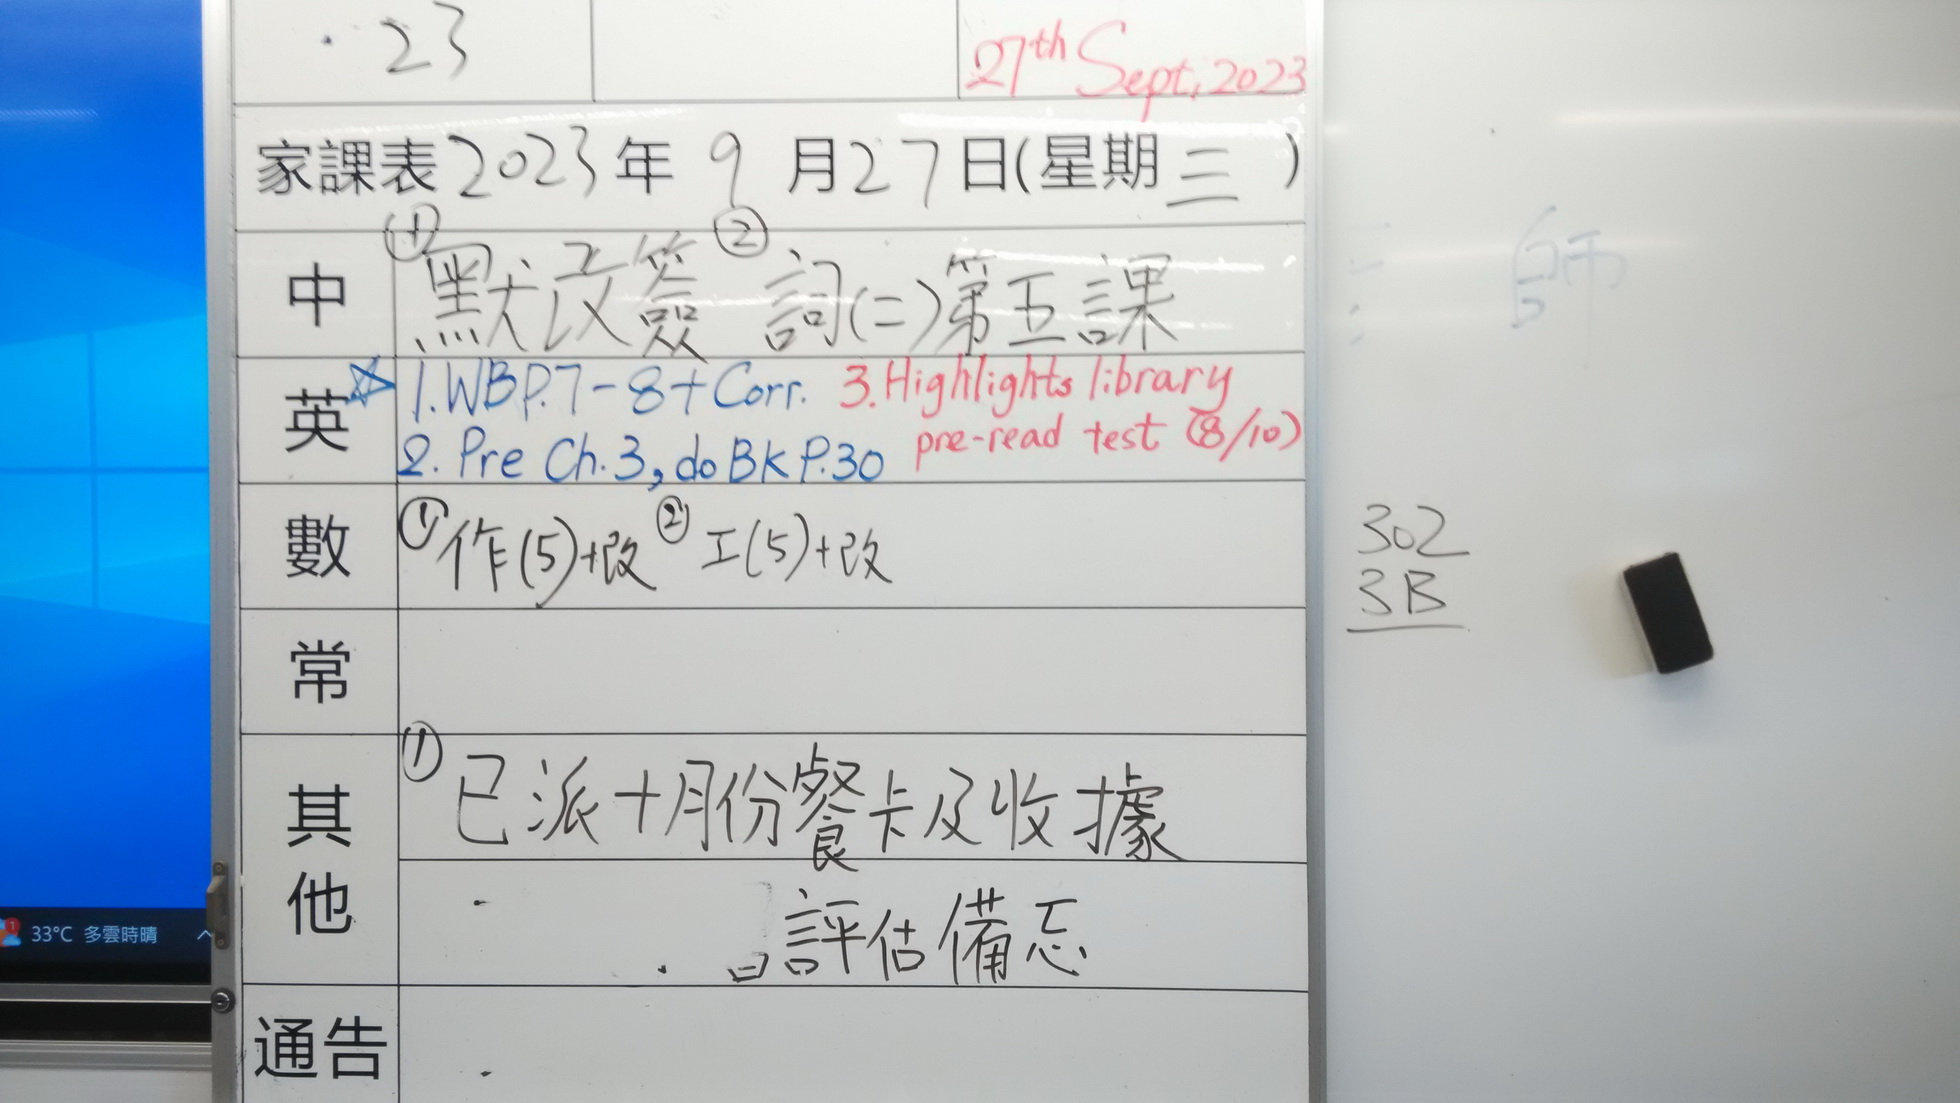 23
27th Sept, 2023
家課表2023年 9 月27日(星期三)
中 ①默改簽 ②詞(二)第五課
英 ☆ 1. WB P.7-8 + Corr. 3. Highlights library
2. Pre Ch. 3, do BK P.30 pre-read test (8/10)
數 ①作(5)+改 ②工(5)+改
常
其他 ①已派十月份餐卡及收據
評估備忘
通告
302
3B
師
1
33°C 多雲時晴